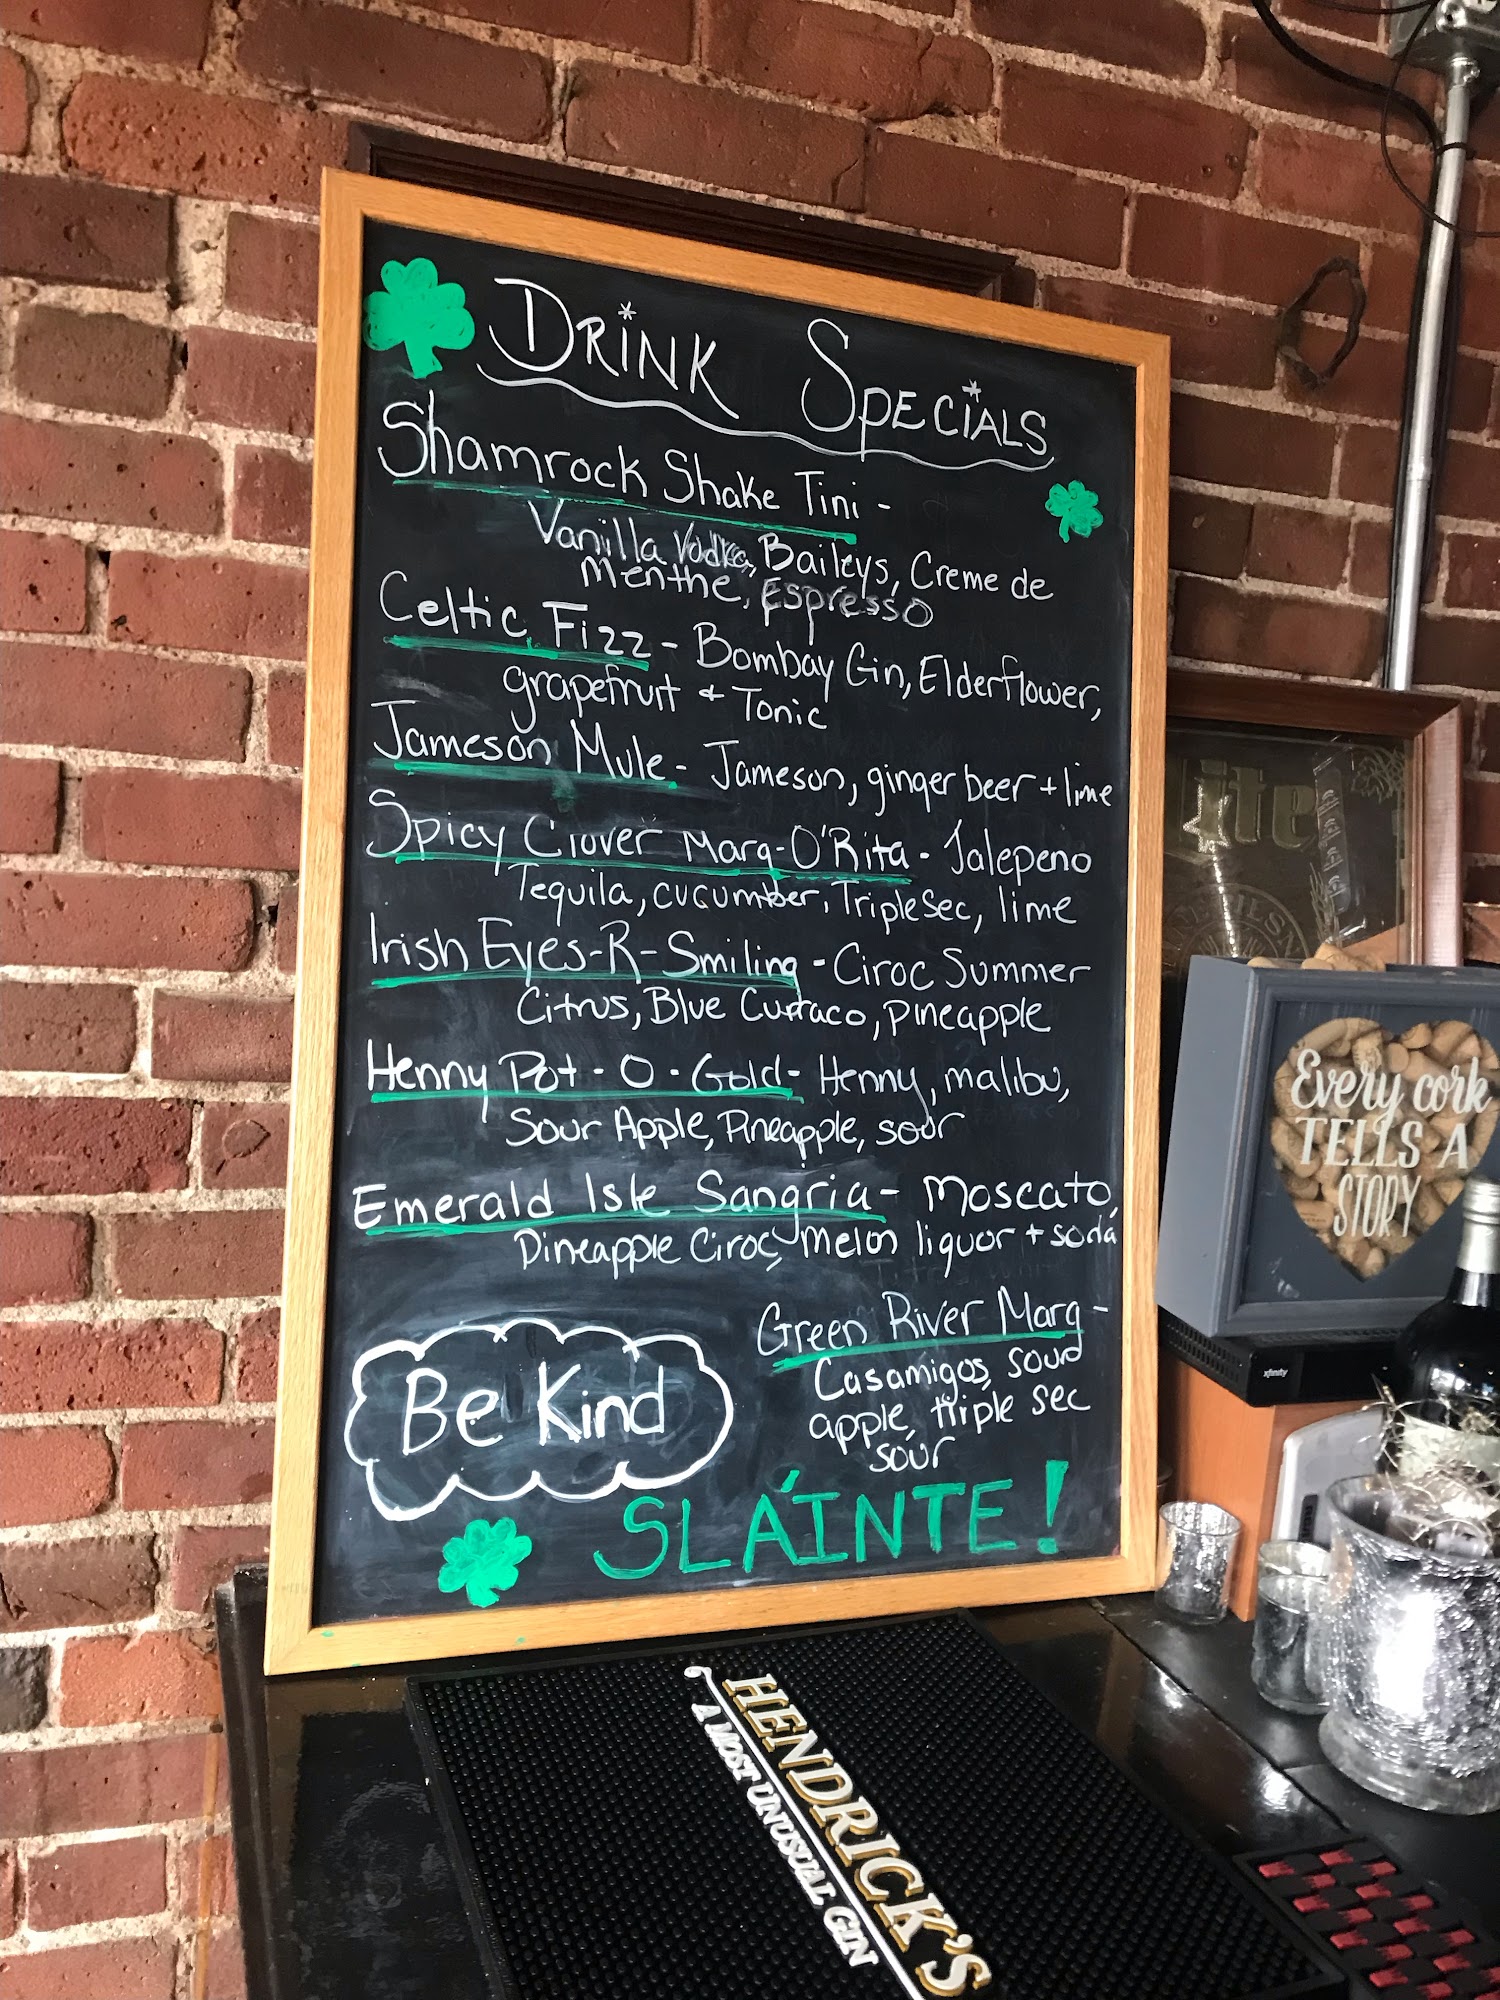 DRINK SPECIALS
Shamrock Shake Tini -
Vanilla Vodka, Baileys, Creme de
Menthe, Espresso
Celtic Fizz - Bombay Gin, Elderflower,
grapefruit + Tonic
Jameson Mule - Jameson, ginger beer + lime
Spicy Clover Marg-O'Rita - Jalepeno
Tequila, cucumber, Triple Sec, lime
Irish Eyes-R-Smiling - Ciroc Summer
Citrus, Blue Curraco, Pineapple
Henny Pot-O-Gold - Henny, malibu,
Sour Apple, Pineapple, sour
Emerald Isle Sangria - Moscato,
Pineapple Ciroc, Melon liquor + soda
Green River Marg -
Casamigos, sour
apple, triple sec
sour
Be Kind
SLÁINTE!
Every cork
TELLS A
STORY
xfinity
Lite
HENDRICK'S
A MOST UNUSUAL GIN